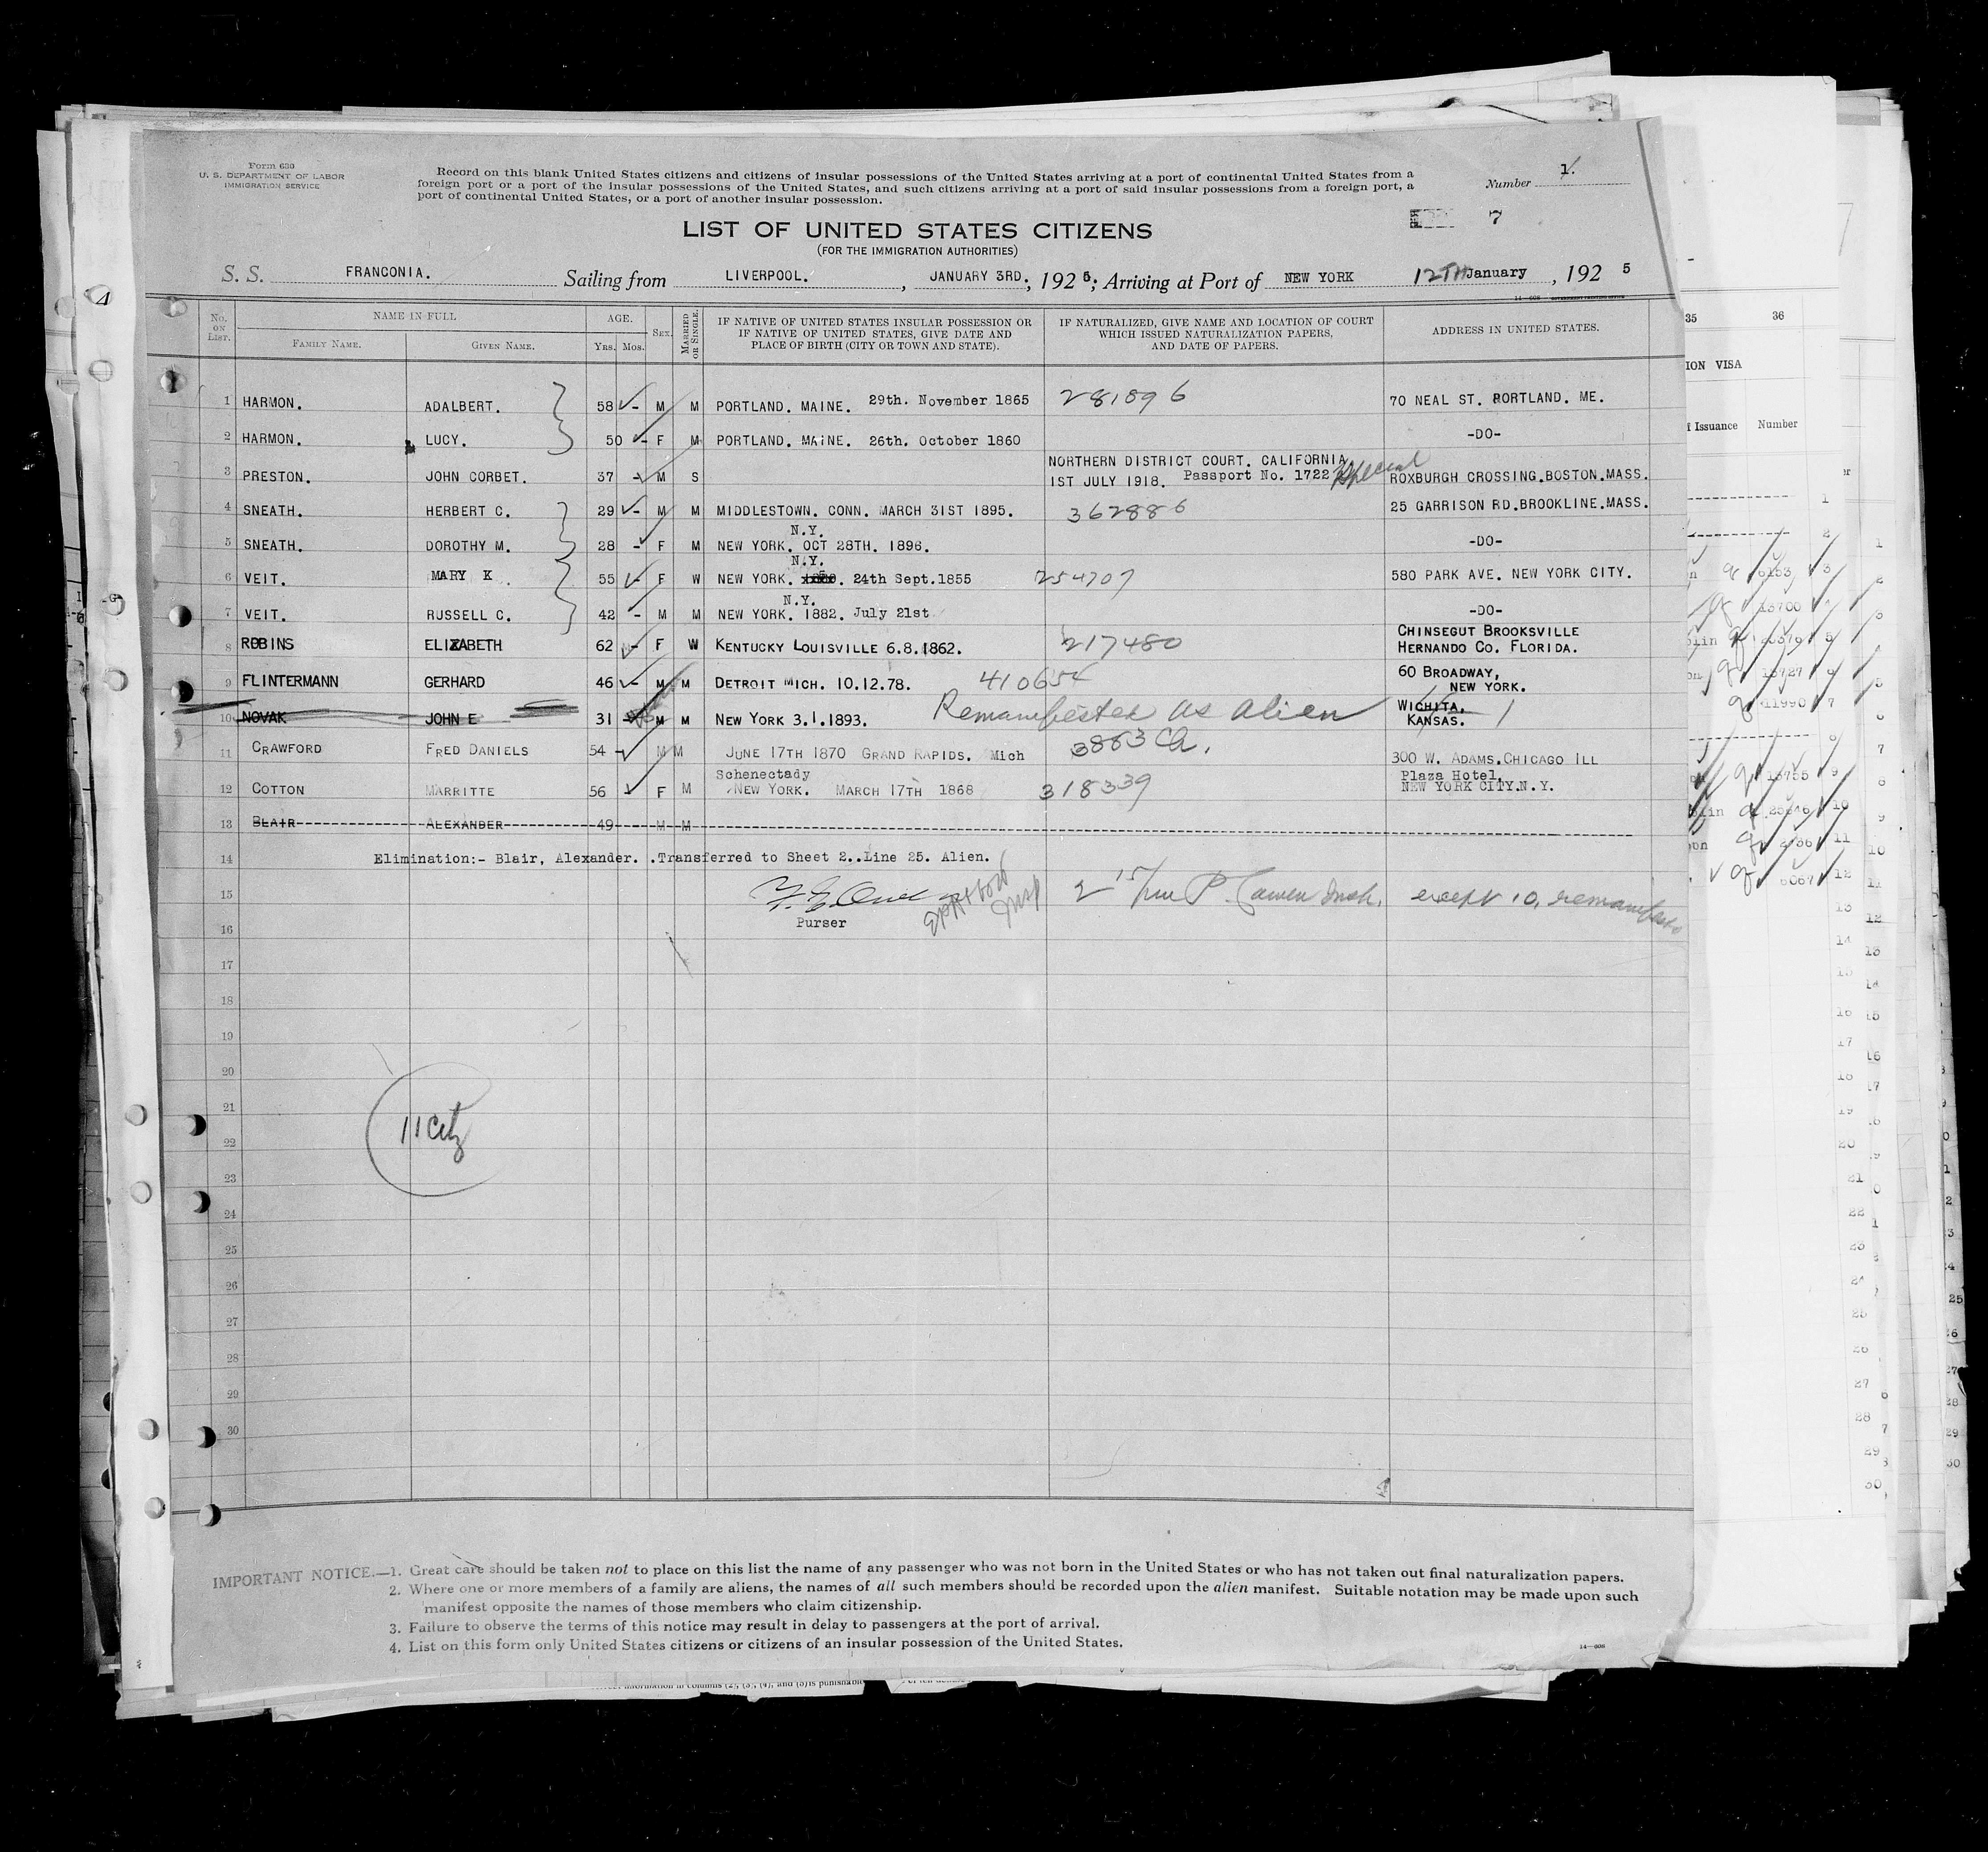 Form 630
U. S. DEPARTMENT OF LABOR
IMMIGRATION SERVICE
Record on this blank United States citizens and citizens of insular possessions of the United States arriving at a port of continental United States from a
foreign port or a port of the insular possessions of the United States, and such citizens arriving at a port of said insular possessions from a foreign port, a
port of continental United States, or a port of another insular possession.
Number 1.
7
LIST OF UNITED STATES CITIZENS
(FOR THE IMMIGRATION AUTHORITIES)
S. S. FRANCONIA. Sailing from LIVERPOOL. , JANUARY 3RD. , 1925; Arriving at Port of NEW YORK 12TH January , 192 5
14—608 GOVERNMENT PRINTING OFFICE
No. ON LIST. NAME IN FULL AGE. SEX. MARRIED OR SINGLE. IF NATIVE OF UNITED STATES INSULAR POSSESSION OR IF NATIVE OF UNITED STATES, GIVE DATE AND PLACE OF BIRTH (CITY OR TOWN AND STATE). IF NATURALIZED, GIVE NAME AND LOCATION OF COURT WHICH ISSUED NATURALIZATION PAPERS, AND DATE OF PAPERS. ADDRESS IN UNITED STATES.
FAMILY NAME. GIVEN NAME. YRS. MOS.
1 HARMON. ADALBERT. 58 - M M PORTLAND. MAINE. 29th. November 1865 281896 70 NEAL ST. PORTLAND. ME.
2 HARMON. LUCY. 50 - F M PORTLAND. MAINE. 26th. October 1860 -DO-
NORTHERN DISTRICT COURT. CALIFORNIA
3 PRESTON. JOHN CORBET. 37 - M S 1ST JULY 1918. Passport No. 1722 Special ROXBURGH CROSSING.BOSTON.MASS.
4 SNEATH. HERBERT C. 29 - M M MIDDLESTOWN. CONN. MARCH 31ST 1895. 362886 25 GARRISON RD.BROOKLINE.MASS.
N.Y.
5 SNEATH. DOROTHY M. 28 - F M NEW YORK. OCT 28TH. 1896. -DO-
N.Y.
6 VEIT. MARY K. 55 - F W NEW YORK. 24th Sept.1855 254707 580 PARK AVE. NEW YORK CITY.
N.Y.
7 VEIT. RUSSELL C. 42 - M M NEW YORK. 1882. July 21st -DO-
CHINSEGUT BROOKSVILLE
8 ROBINS ELIZABETH 62 - F W KENTUCKY LOUISVILLE 6.8.1862. 217480 HERNANDO CO. FLORIDA.
60 BROADWAY,
9 FLINTERMANN GERHARD 46 - M M DETROIT MICH. 10.12.78. 410654 NEW YORK.
WICHITA,
10 NOVAK JOHN E 31 - M M NEW YORK 3.1.1893. Remanifested as alien KANSAS.
11 CRAWFORD FRED DANIELS 54 - M M JUNE 17TH 1870 GRAND RAPIDS. Mich 3883 Ca. 300 W. ADAMS.CHICAGO ILL
Schenectady Plaza Hotel,
12 COTTON MARRITTE 56 - F M NEW YORK. MARCH 17TH 1868 318339 NEW YORK CITY.N.Y.
13 BLAIR ALEXANDER 49 M M
14 Elimination:- Blair, Alexander. .Transferred to Sheet 2..Line 25. Alien.
15 except 10, remanifested
Purser
16
17
18
19
20
21
11 Citz
22
23
24
25
26
27
28
29
30
IMPORTANT NOTICE.—1. Great care should be taken not to place on this list the name of any passenger who was not born in the United States or who has not taken out final naturalization papers.
2. Where one or more members of a family are aliens, the names of all such members should be recorded upon the alien manifest. Suitable notation may be made upon such
manifest opposite the names of those members who claim citizenship.
3. Failure to observe the terms of this notice may result in delay to passengers at the port of arrival.
4. List on this form only United States citizens or citizens of an insular possession of the United States.
14—608
35 36
ION VISA
Issuance Number